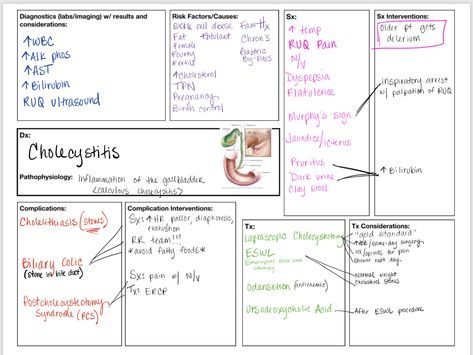 Diagnostics (labs/imaging) w/ results and considerations:
↑WBC
↑Alk phos
↑AST
↑Bilirubin
RUQ ultrasound
Risk Factors/Causes:
Sickle cell disease
Fam Hx
Fat
Flatulant
Chron's
Female
Gastric
Fourty
By-pass
Fertile
↑cholesterol
TPN
Pregnancy
Birth control
Sx:
↑ temp
RUQ Pain
N/V
Dyspepsia
Flatulence
Murphy's sign
Jaundice/icterus
Pruritus
Dark urine
Clay stool
Sx Interventions:
Older pt gets
delerium
Inspiratory arrest
w/ palpation of RUQ
↑ Bilirubin
Dx:
Cholecystitis
Pathophysiology: Inflammation of the gallbladder
(calculous cholecystitis)
Complications:
Cholelithiasis (stones)
Biliary Colic
(stone in bile duct)
Postcholecystectomy
Syndrome (PCS)
Complication Interventions:
Sx: ↑HR pallor, diaphoresis,
exhaustion
RR team!!!
*avoid fatty foods*
Sx: pain w/ N/V
Tx: ERCP
Tx:
Laprascopic Cholecystectomy
ESWL
Odansetron (antiemetic)
Ursodeoxycholic Acid
Tx Considerations:
"gold standard"
ice/opioids for pain
shower next day.
Normal weight
cholesterol stones
After ESWL procedure